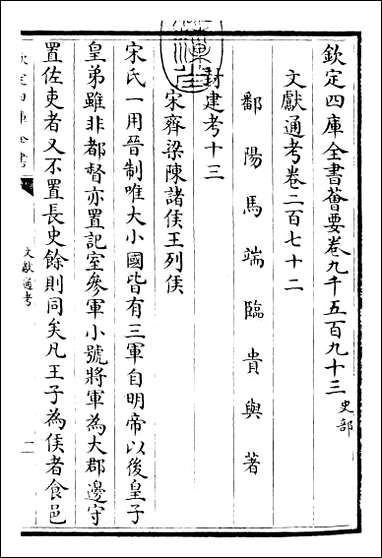 欽定四庫全書薈要卷九千五百九十三 史部
文獻通考卷二百七十二
鄱陽馬端臨貴與著
封建考十三
宋齊梁陳諸侯王列侯
宋氏一用晉制唯大小國皆有三軍自明帝以後皇子
皇弟雖非都督亦置記室參軍小號將軍為大郡邊守
置佐吏者又不置長史餘則同矣凡王子為侯者食邑
欽定四庫全書
文獻通考